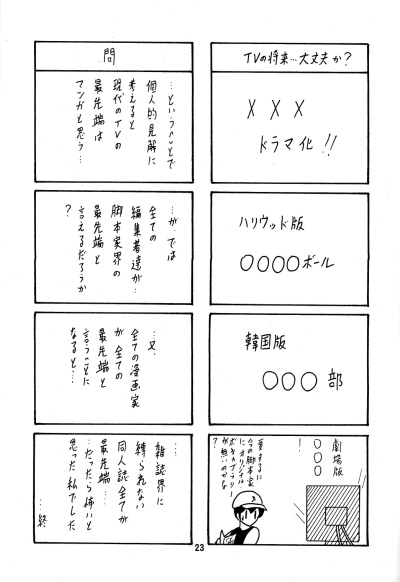 TVの将来…大丈夫か?
XXX
ドラマ化!!
ハリウッド版
○○○○ボール
韓国版
○○○部
劇場版
○○○
!
要するに
今の脚本家
にオリジナル
ボキャブラリー
が無いのかな
?
問
…ということで
個人的見解に
考えると
現代のTVの
最先端は
マンガと思う…
…が、では
全ての
編集者達が…
脚本家界の
最先端と
言えるだろうか
?
…又、
全ての漫画家
が全ての
最先端と
言うことに
なると…
…雑誌界に
縛られない
同人誌全てが
最先端…
…だったら怖いと
思った私でした
…終
23